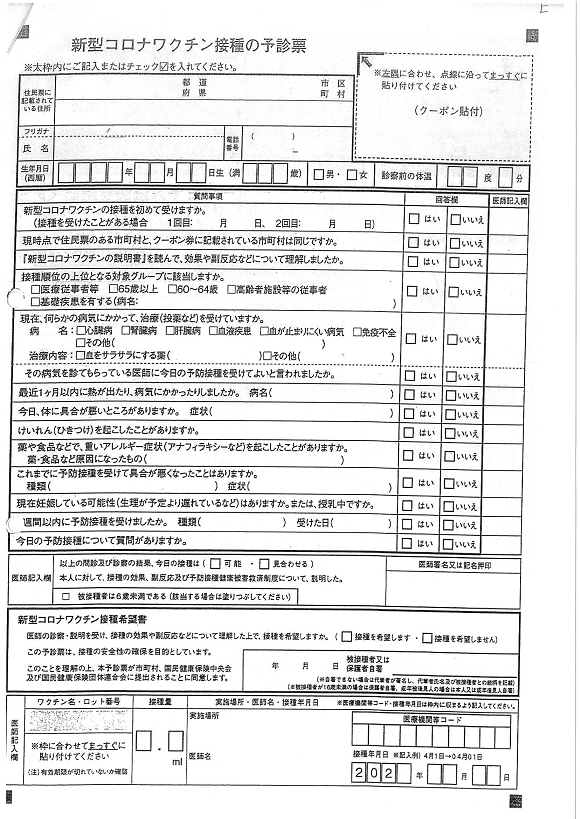 新型コロナワクチン接種の予診票
※太枠内にご記入またはチェック☑を入れてください。
※左隅に合わせ、点線に沿ってまっすぐに
貼り付けてください
(クーポン貼付)
住民票に
記載されて
いる住所
都 道
府 県
市 区
町 村
フリガナ
氏 名
電話
番号
( )
－
生年月日
(西暦)
年 月 日生 (満 歳) □男・□女
診察前の体温 度 分
質問事項 回答欄 医師記入欄
新型コロナワクチンの接種を初めて受けますか。
(接種を受けたことがある場合 1回目: 月 日、 2回目: 月 日)
□はい □いいえ
現時点で住民票のある市町村と、クーポン券に記載されている市町村は同じですか。 □はい □いいえ
『新型コロナワクチンの説明書』を読んで、効果や副反応などについて理解しましたか。 □はい □いいえ
接種順位の上位となる対象グループに該当しますか。
□医療従事者等 □65歳以上 □60～64歳 □高齢者施設等の従事者
□基礎疾患を有する(病名: )
□はい □いいえ
現在、何らかの病気にかかって、治療(投薬など)を受けていますか。
病 名: □心臓病 □腎臓病 □肝臓病 □血液疾患 □血が止まりにくい病気 □免疫不全
□その他( )
治療内容: □血をサラサラにする薬( ) □その他( )
□はい □いいえ
その病気を診てもらっている医師に今日の予防接種を受けてよいと言われましたか。 □はい □いいえ
最近1ヶ月以内に熱が出たり、病気にかかったりしましたか。 病名( ) □はい □いいえ
今日、体に具合が悪いところがありますか。 症状( ) □はい □いいえ
けいれん(ひきつけ)を起こしたことがありますか。 □はい □いいえ
薬や食品などで、重いアレルギー症状(アナフィラキシーなど)を起こしたことがありますか。
薬・食品など原因になったもの( )
□はい □いいえ
これまでに予防接種を受けて具合が悪くなったことはありますか。
種類( ) 症状( )
□はい □いいえ
現在妊娠している可能性(生理が予定より遅れているなど)はありますか。または、授乳中ですか。 □はい □いいえ
週間以内に予防接種を受けましたか。 種類( ) 受けた日( ) □はい □いいえ
今日の予防接種について質問がありますか。 □はい □いいえ
医師記入欄
以上の問診及び診察の結果、今日の接種は(□可能 ・ □見合わせる)
本人に対して、接種の効果、副反応及び予防接種健康被害救済制度について、説明した。
□ 被接種者は6歳未満である (該当する場合は塗りつぶしてください)
医師署名又は記名押印
新型コロナワクチン接種希望書
医師の診察・説明を受け、接種の効果や副反応などについて理解した上で、接種を希望しますか。(□接種を希望します ・ □接種を希望しません)
この予診票は、接種の安全性の確保を目的としています。
このことを理解の上、本予診票が市町村、国民健康保険中央会
及び国民健康保険団体連合会に提出されることに同意します。
年 月 日
被接種者又は
保護者自署
(※自署できない場合は代筆者が署名し、代筆者氏名及び被接種者との続柄を記載)
(※被接種者が16歳未満の場合は保護者自署、成年被後見人の場合は本人又は成年後見人自署)
医師記入欄
ワクチン名・ロット番号
※枠に合わせてまっすぐに
貼り付けてください
(注)有効期限が切れていないか確認
接種量
.
ml
実施場所・医師名・接種年月日 ※医療機関等コード・接種年月日は枠内に収まるよう記入してください。
実施場所
医師名
医療機関等コード
接種年月日 ※記入例) 4月1日→04月01日
202 年 月 日